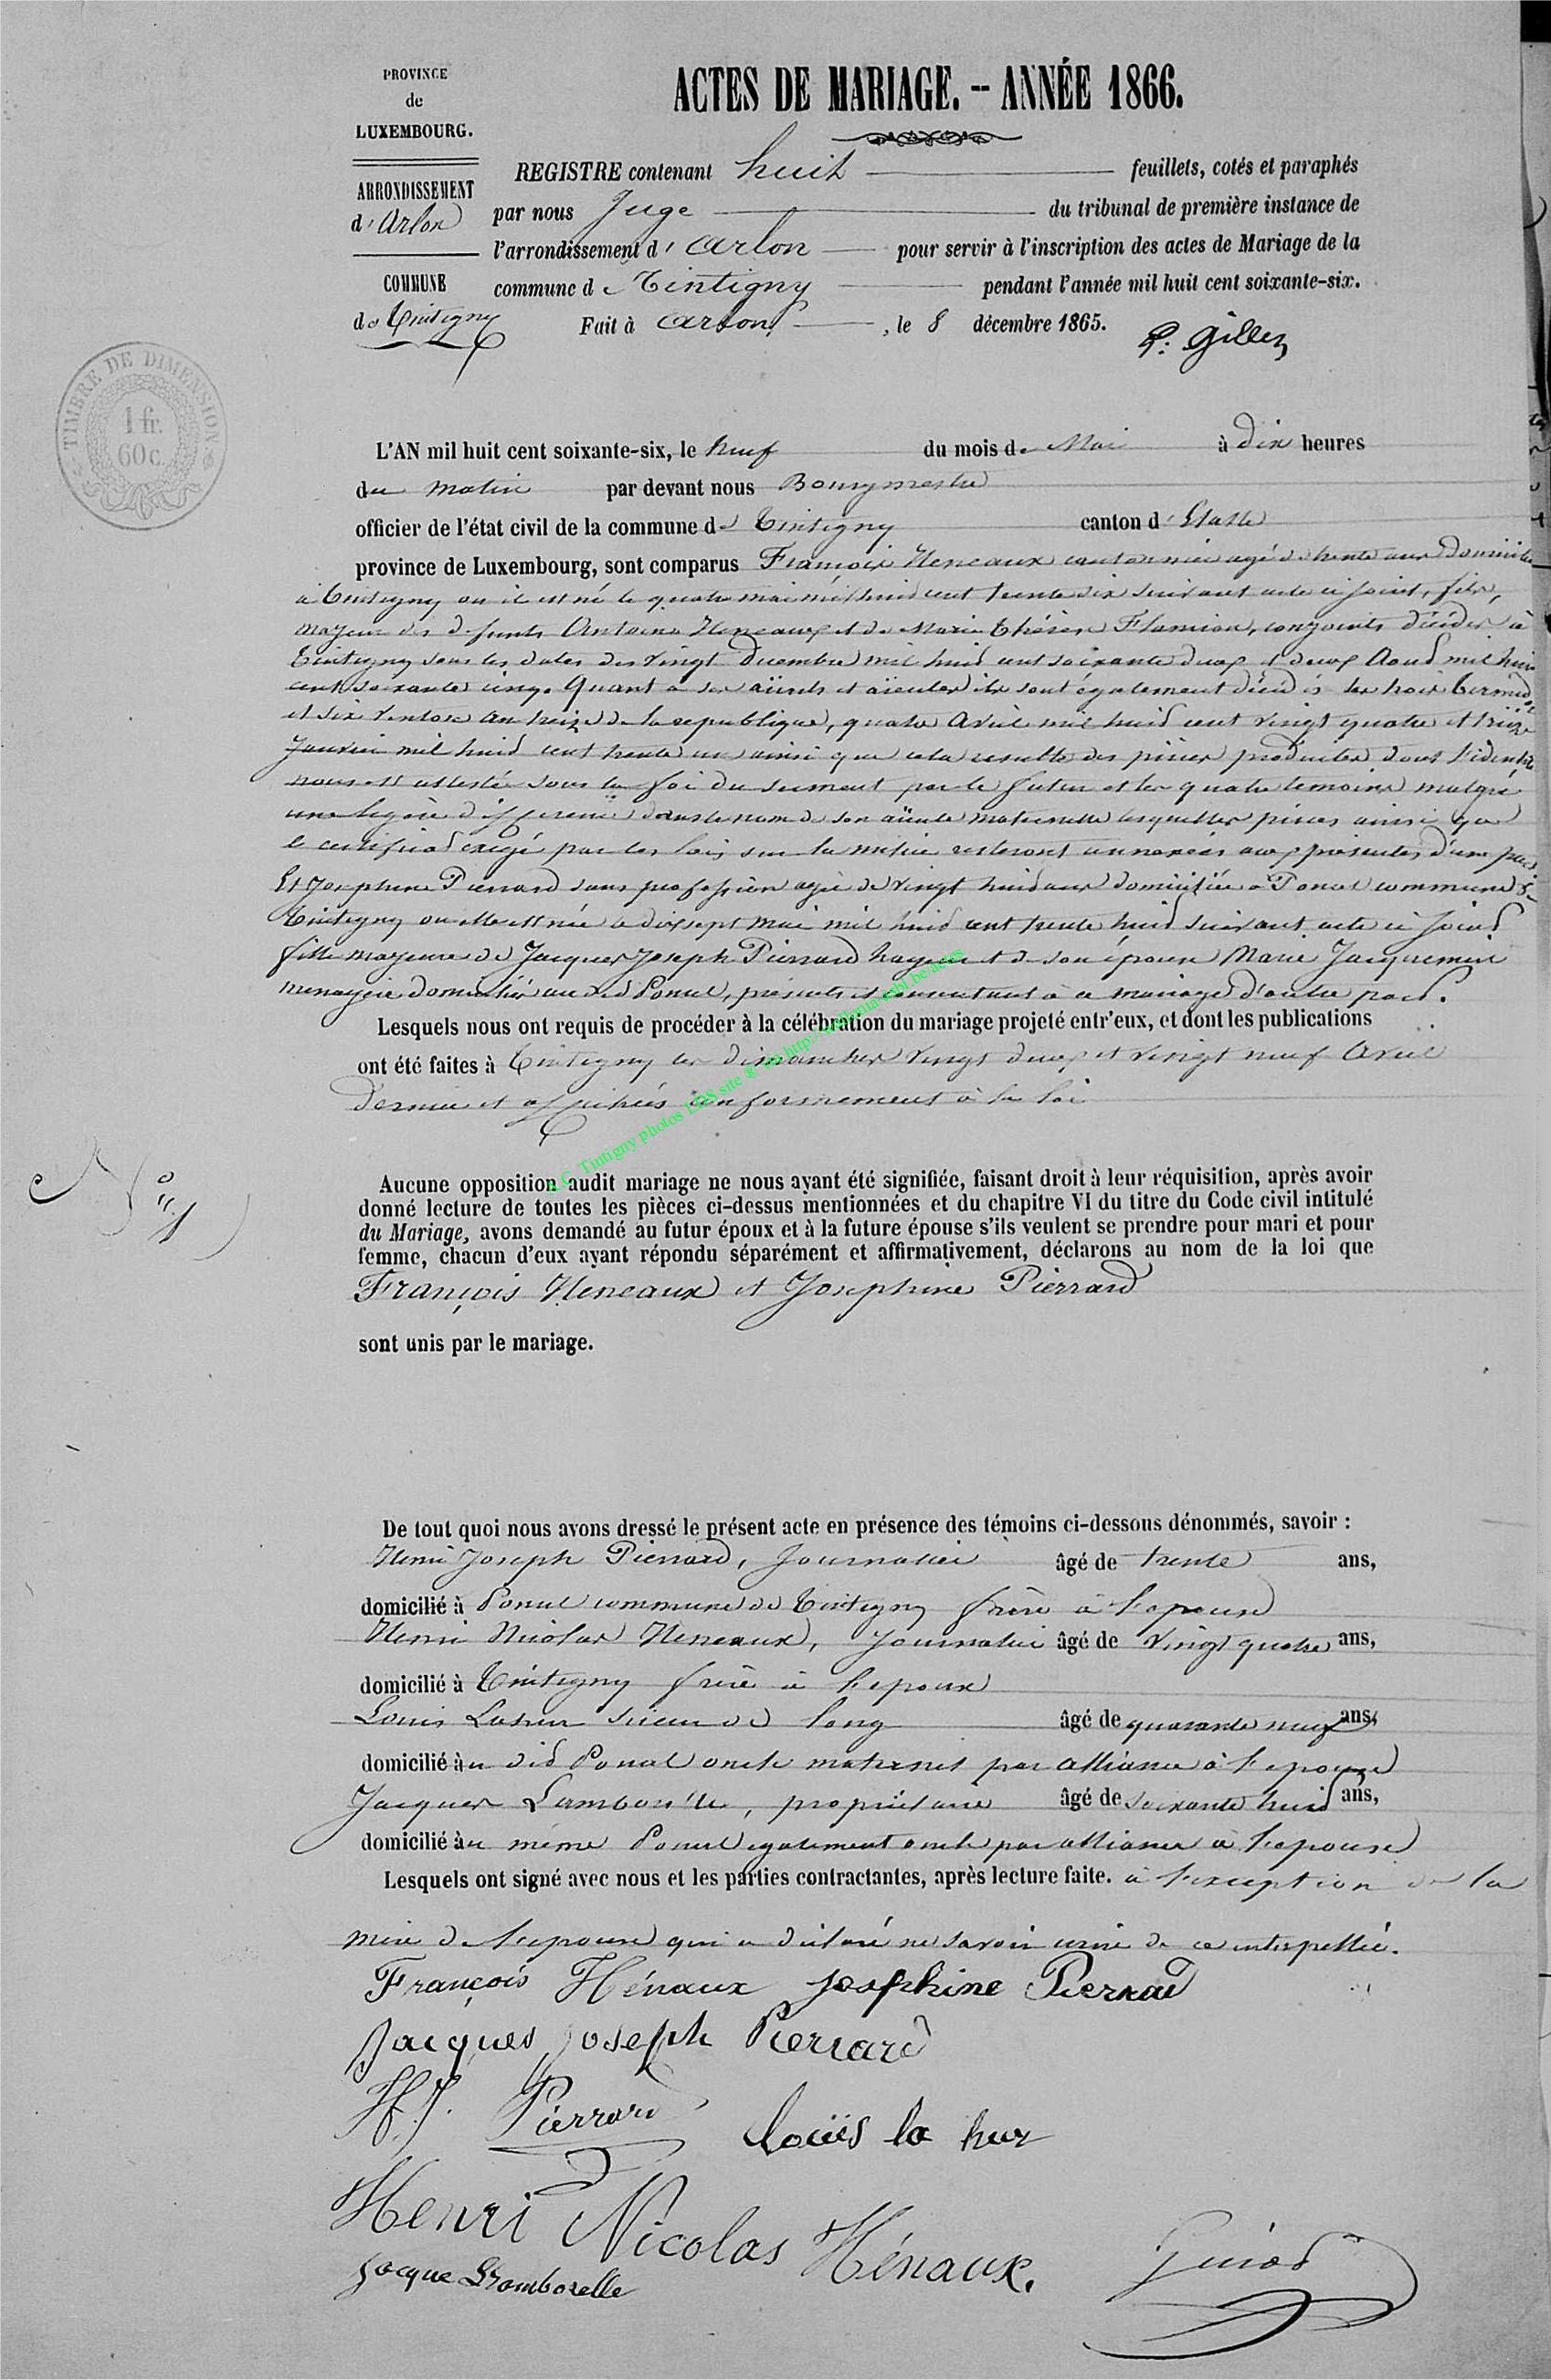 PROVINCE
de
LUXEMBOURG.
ARRONDISSEMENT
d'Arlon
COMMUNE
de Tintigny
ACTES DE MARIAGE. -- ANNÉE 1866.
REGISTRE contenant huit feuillets, cotés et paraphés
par nous Juge du tribunal de première instance de
l'arrondissement d'Arlon pour servir à l'inscription des actes de Mariage de la
commune de Tintigny pendant l'année mil huit cent soixante-six.
Fait à Arlon, le 8 décembre 1865.
TIMBRE DE DIMENSION
1 fr.
60 c.
L'AN mil huit cent soixante-six, le neuf du mois de Mai à dix heures
du matin par devant nous Bourgmestre
officier de l'état civil de la commune de Tintigny canton d'Etalle
province de Luxembourg, sont comparus François Heneaux cantonnier agé de trente ans domicilié
à Tintigny ou il est né le quatre mai mil huit cent trente six suivant acte ci joint, fils
majeur des défunts Antoine Heneaux et de Marie Thérèse Flamion, conjoints décédés à
Tintigny sous les dates des vingt décembre mil huit cent soixante deux et deux Aout mil huit
cent soixante cinq. Quant à ses aïeuls et aïeules ils sont également décédés les trois
et six ventose an treize de la republique, quatre Avril mil huit cent vingt quatre et
Janvier mil huit cent trente un ainsi que cela resulte des pièces produites dont l'identité
nous est attestée sous la foi du serment par le futur et les quatre temoins malgré
une legère différence dans le nom de son aïeule maternelle lesquelles pièces ainsi que
le certificat exigé par les lois sur la milice resteront annexées aux présentes d'une part
Et Josephine Pierrard sans profession agée de vingt huit ans domiciliée à Poncel commune de
Tintigny ou elle est née le dix sept Mai mil huit cent trente huit suivant acte ci joint
fille majeure de Jacques Joseph Pierrard et de son épouse Marie Jacquemin
menagère domiciliés au dit Poncel, présents et consentant à ce mariage d'autre part.
Lesquels nous ont requis de procéder à la célébration du mariage projeté entr'eux, et dont les publications
ont été faites à Tintigny les dimanches vingt deux et vingt neuf Avril
dernier et affichées conformement à la loi
A.C. Tintigny photos LDS site
No 11
Aucune opposition audit mariage ne nous ayant été signifiée, faisant droit à leur réquisition, après avoir
donné lecture de toutes les pièces ci-dessus mentionnées et du chapitre VI du titre du Code civil intitulé
du Mariage, avons demandé au futur époux et à la future épouse s'ils veulent se prendre pour mari et pour
femme, chacun d'eux ayant répondu séparément et affirmativement, déclarons au nom de la loi que
François Heneaux et Josephine Pierrard
sont unis par le mariage.
De tout quoi nous avons dressé le présent acte en présence des témoins ci-dessous dénommés, savoir :
Henri Joseph Pierrard, Journalier âgé de trente ans,
domicilié à Poncel commune de Tintigny frère à l'epouse
Henri Nicolas Heneaux, Journalier âgé de vingt quatre ans,
domicilié à Tintigny frère à l'epoux
Louis Lahure scieur de long âgé de quarante neuf ans,
domicilié au dit Poncel oncle maternel par alliance à l'epouse
Jacques Lamborelle, propriétaire âgé de soixante huit ans,
domicilié au même Poncel egalement oncle par alliance à l'epouse
Lesquels ont signé avec nous et les parties contractantes, après lecture faite. à l'exception de la
mère de l'epouse qui a déclaré ne savoir ecrire de ce interpellée.
François Hénaux Josephine Pierrard
Jacques Joseph Pierrard
H. J. Pierrard
Louis la hur
Henri Nicolas Hénaux.
Jacque Lamborelle